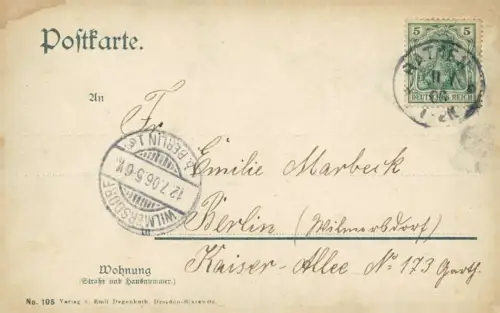 Postkarte.
5 5
DEUTSCHES REICH
11.7.
06
An
Fr
Emilie Marbeck
WILMERSDORF
12.7.06.5-6N.
b. BERLIN 1
Berlin (Wilmersdorf)
Kaiser-Allee No 173 Garth.
Wohnung
(Straße und Hausnummer.)
No. 105 Verlag v. Emil Degenkolb, Dresden-Blasewitz.